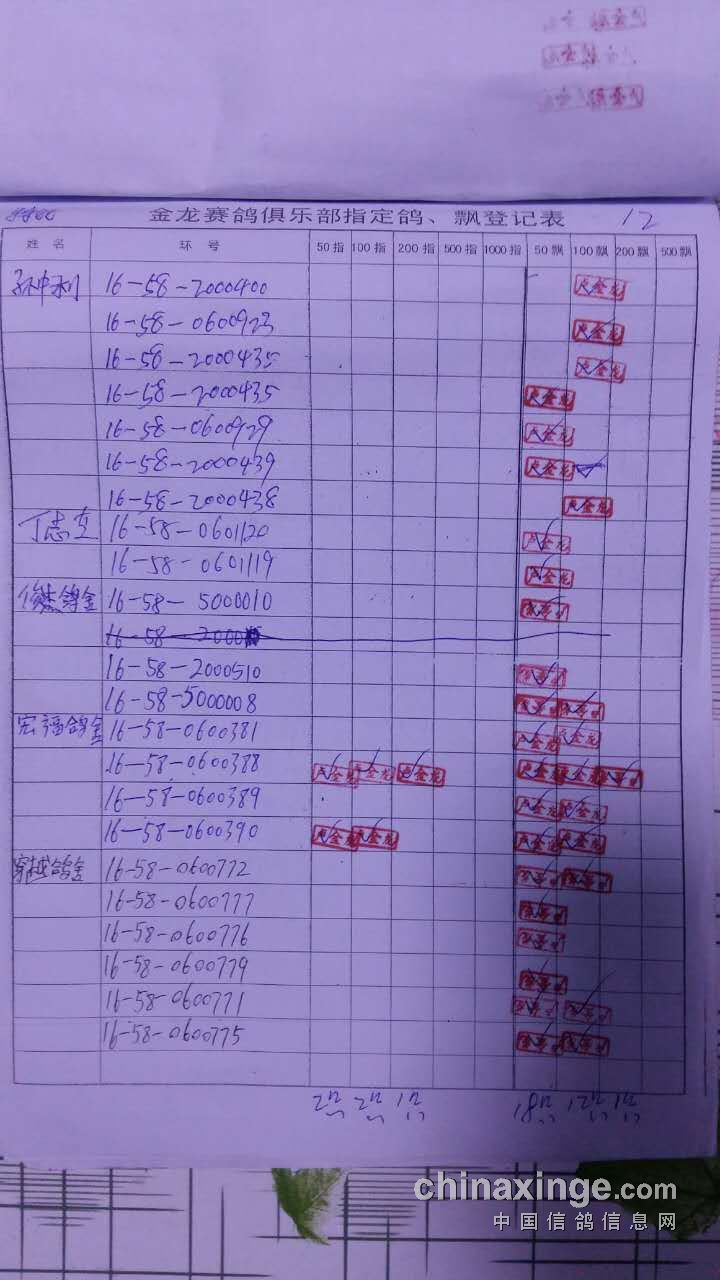 金龙赛鸽俱乐部指定鸽、飘登记表 12
姓名 环号 50指 100指 200指 500指 1000指 50飘 100飘 200飘 500飘
16-58-2000400 金龙
16-58-0600923 金龙
16-58-2000435 金龙
16-58-2000435 金龙
16-58-0600929 金龙
16-58-2000439 金龙
16-58-2000438 金龙
丁志立 16-58-0601120 金龙
16-58-0601119 金龙
俊杰鸽舍 16-58-5000010
16-58-2000
16-58-2000510
16-58-5000008
宏福鸽舍 16-58-0600381 金龙 金龙
16-58-0600388 金龙 金龙 金龙 金龙 金龙
16-58-0600389 金龙 金龙
16-58-0600390 金龙 金龙 金龙 金龙
穿越鸽舍 16-58-0600772
16-58-0600777
16-58-0600776
16-58-0600779
16-58-0600771
16-58-0600775
chinaxinge.com
中国信鸽信息网